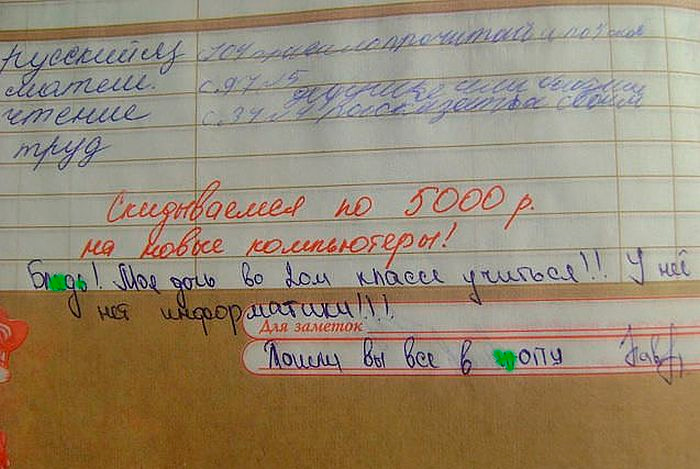 русский яз с 104 правило прочитай и по
матем. с. 97 № 5
чтение с. 94 № 4
труд
Скидываемся по 5000 р.
на новые компьютеры!
Б дь! Моя дочь во 2ом классе учиться!!! У неё
нет информатики!!!
Для заметок
Пошли вы все в опу